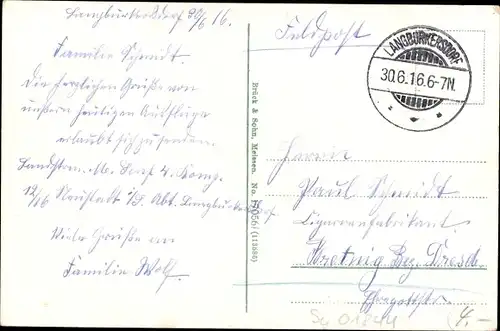 Langburkersdorf 30/6 16.
Familie Schmidt.
Die herzlichen Grüße von
unserm heutigen Ausfluge
erlaubt sich zu senden.
Landstrm. M. 4. Komp.
12/16 Neustadt i/S. Abt. Langburkersdorf.
Viele Grüße an
Familie Wolf.
Brück & Sohn, Meissen. No.
Feldpost
LANGBURKERSDORF
30.6.16.6-7N.
Herrn
Paul Schmidt
Cigarrenfabrikant
Bretnig Bez. Dresd.
4,-